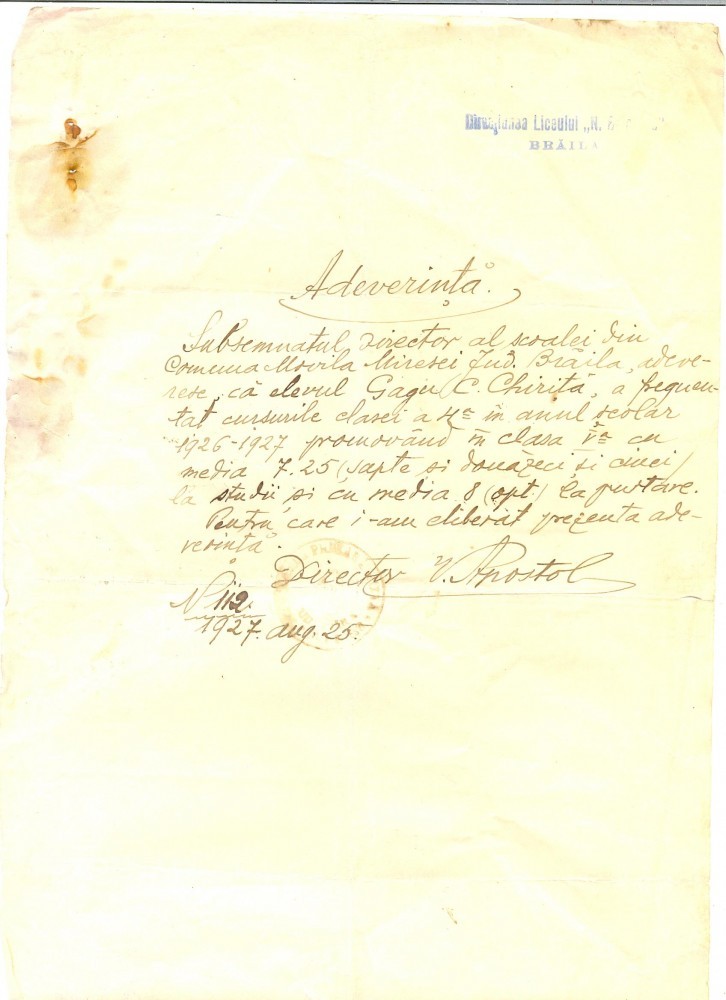 Direcţiunea Liceului „N.
BRĂILA
Adeverinţă.
Subsemnatul, Director al scoalei din
Comuna Movila Miresei Jud. Brăila, adeve-
resc, că elevul Gagu C. Chiriţă, a frequen-
tat cursurile clasei a 4ª în anul scolar
1926-1927 promovând în clasa Vª cu
media 7.25 (sapte si douăzeci si cinci)
la studii si cu media 8 (opt) la purtare.
Pentru care i-am eliberat prezenta ade-
verinţă.
Director V. Apostol
No 112.
1927. aug. 25.